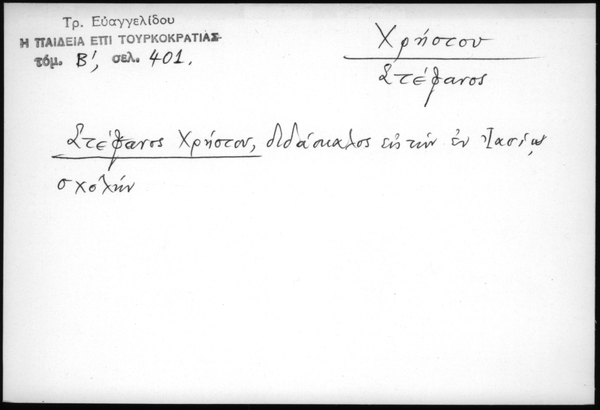 Τρ. Εὐαγγελίδου
Η ΠΑΙΔΕΙΑ ΕΠΙ ΤΟΥΡΚΟΚΡΑΤΙΑΣ
τόμ. Β', σελ. 401.
Χρήστου
Στέφανος
Στέφανος Χρήστου, διδάσκαλος εἰς τὴν ἐν Ἰασίῳ
σχολήν